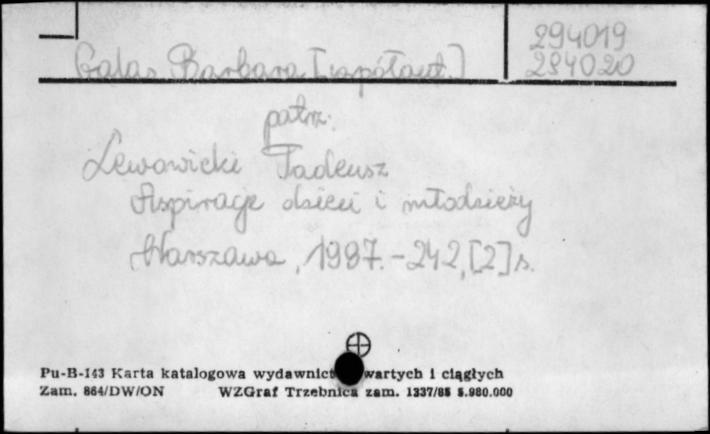 294019
Galas Barbara [współaut.]
294020
patrz:
Lewowicki Tadeusz
Aspiracje dzieci i młodzieży
Warszawa, 1987. - 242, [2] s.
Pu-B-143 Karta katalogowa wydawnict wartych i ciągłych
Zam. 864/DW/ON WZGraf Trzebnica zam. 1337/88 5.980.000